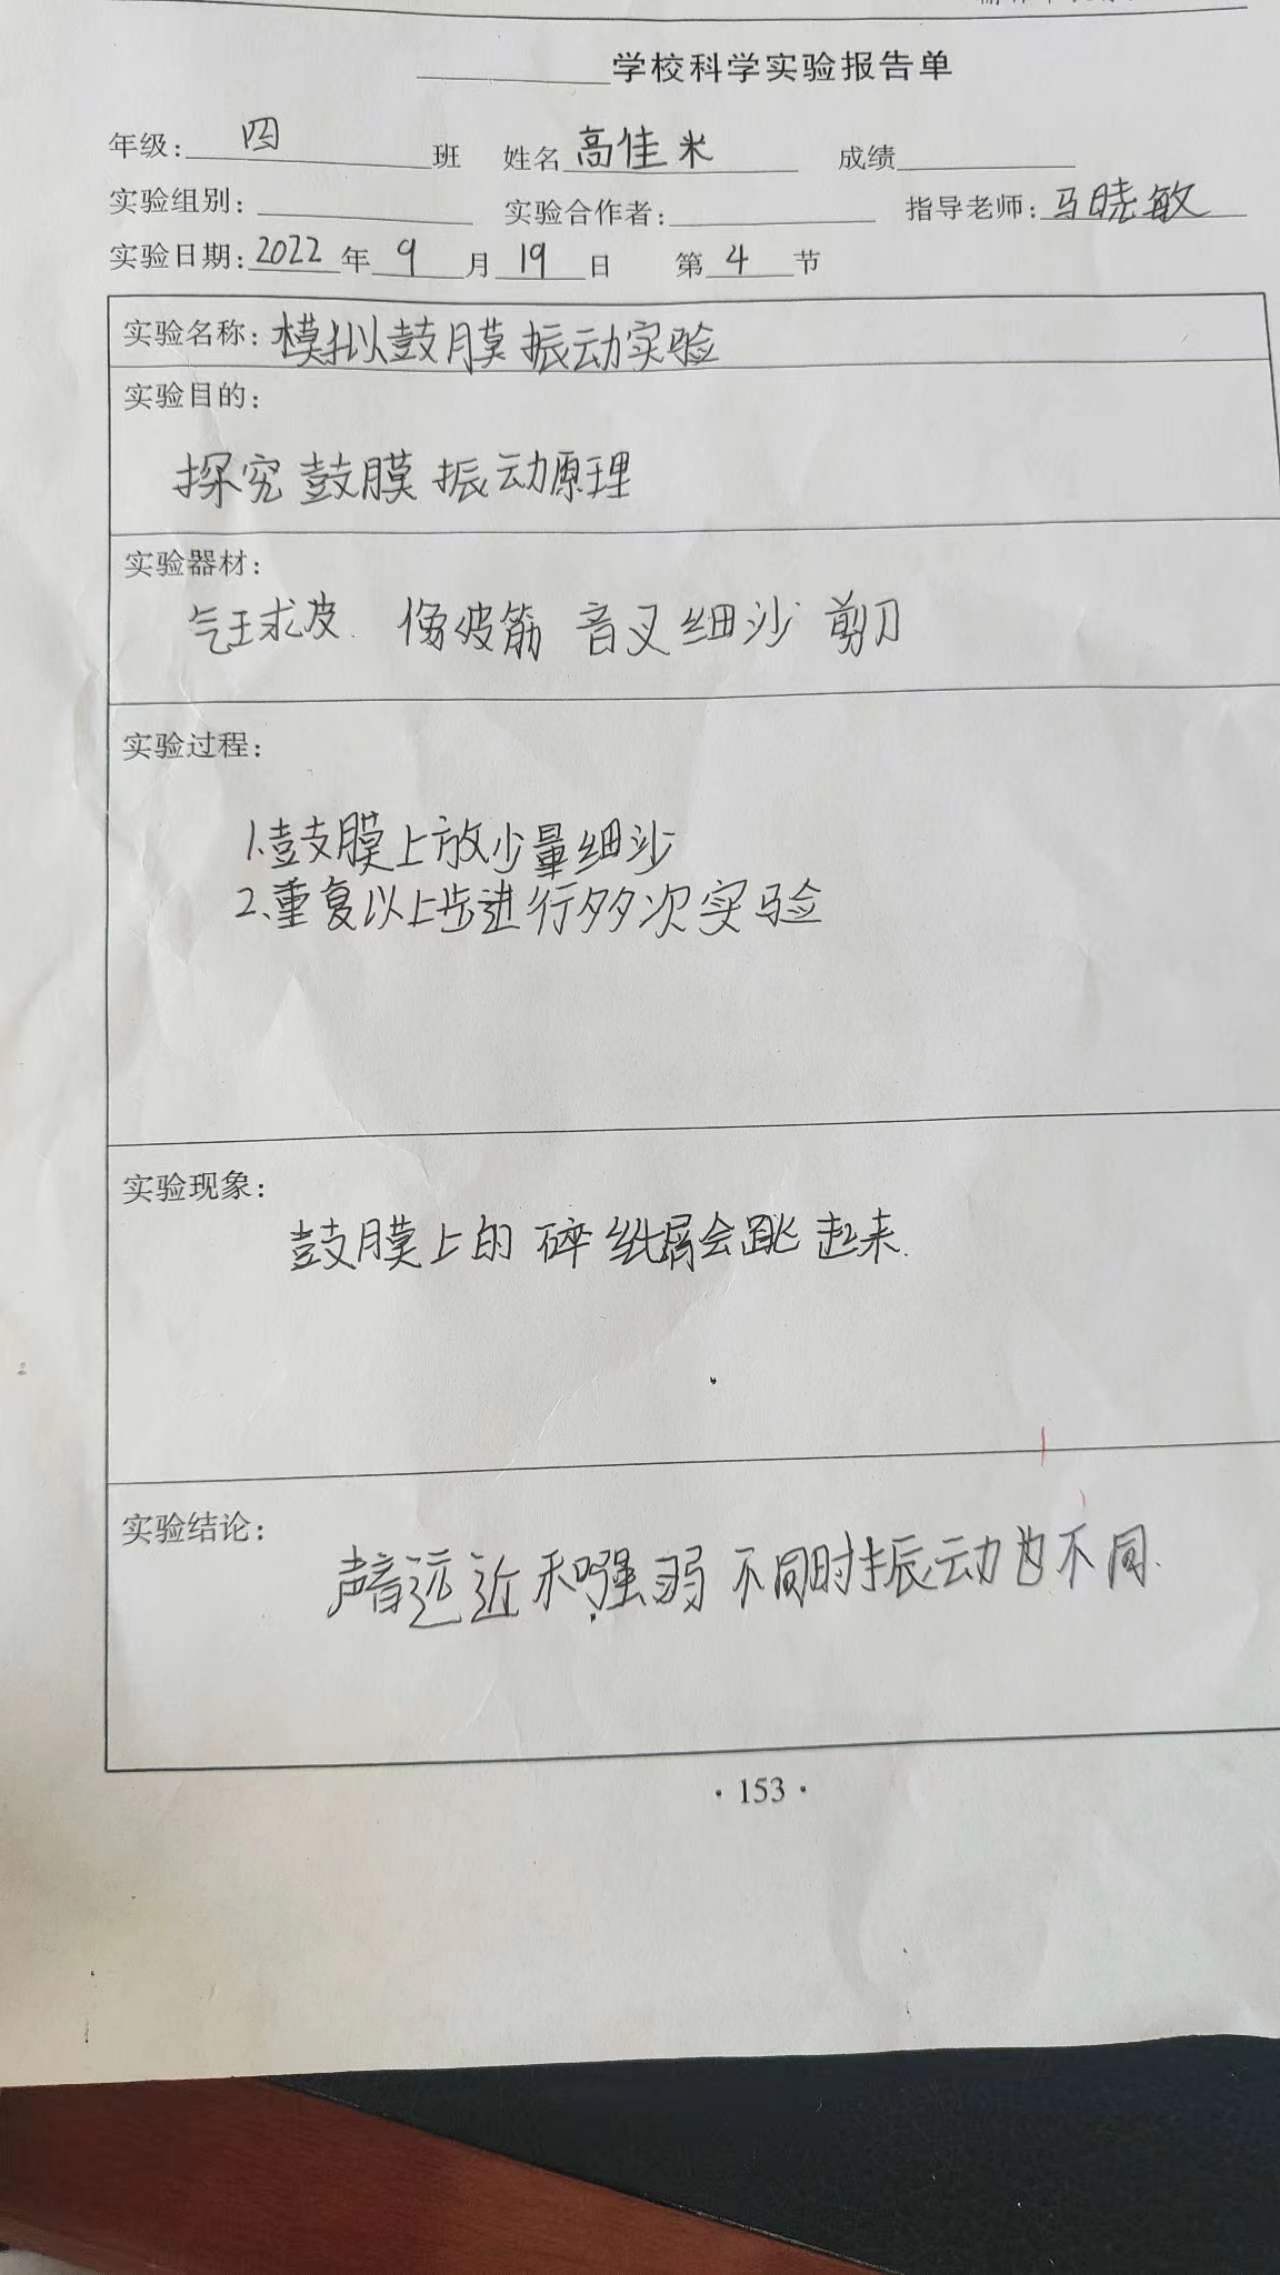 学校科学实验报告单
年级：四 班 姓名 高佳米 成绩
实验组别： 实验合作者： 指导老师：马晓敏
实验日期：2022 年 9 月 19 日 第 4 节
实验名称：模拟鼓膜振动实验
实验目的：
探究鼓膜振动原理
实验器材：
气球皮 像皮筋 音叉 细沙 剪刀
实验过程：
1.鼓膜上放少量细沙
2.重复以上步进行多次实验
实验现象：
鼓膜上的碎纸屑会跳起来.
实验结论：
声音远近和强弱不同时振动也不同.
·153·